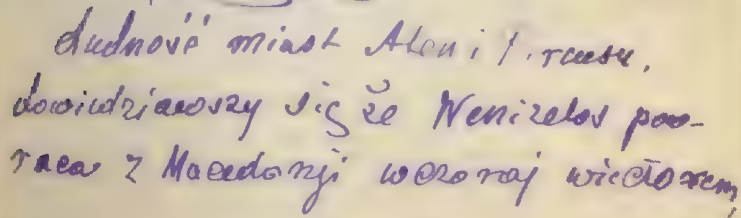 Ludność miast Aten i Pireusu,
dowiedziawszy się że Wenizelos pow-
raca z Macedonji wczoraj wieczorem,